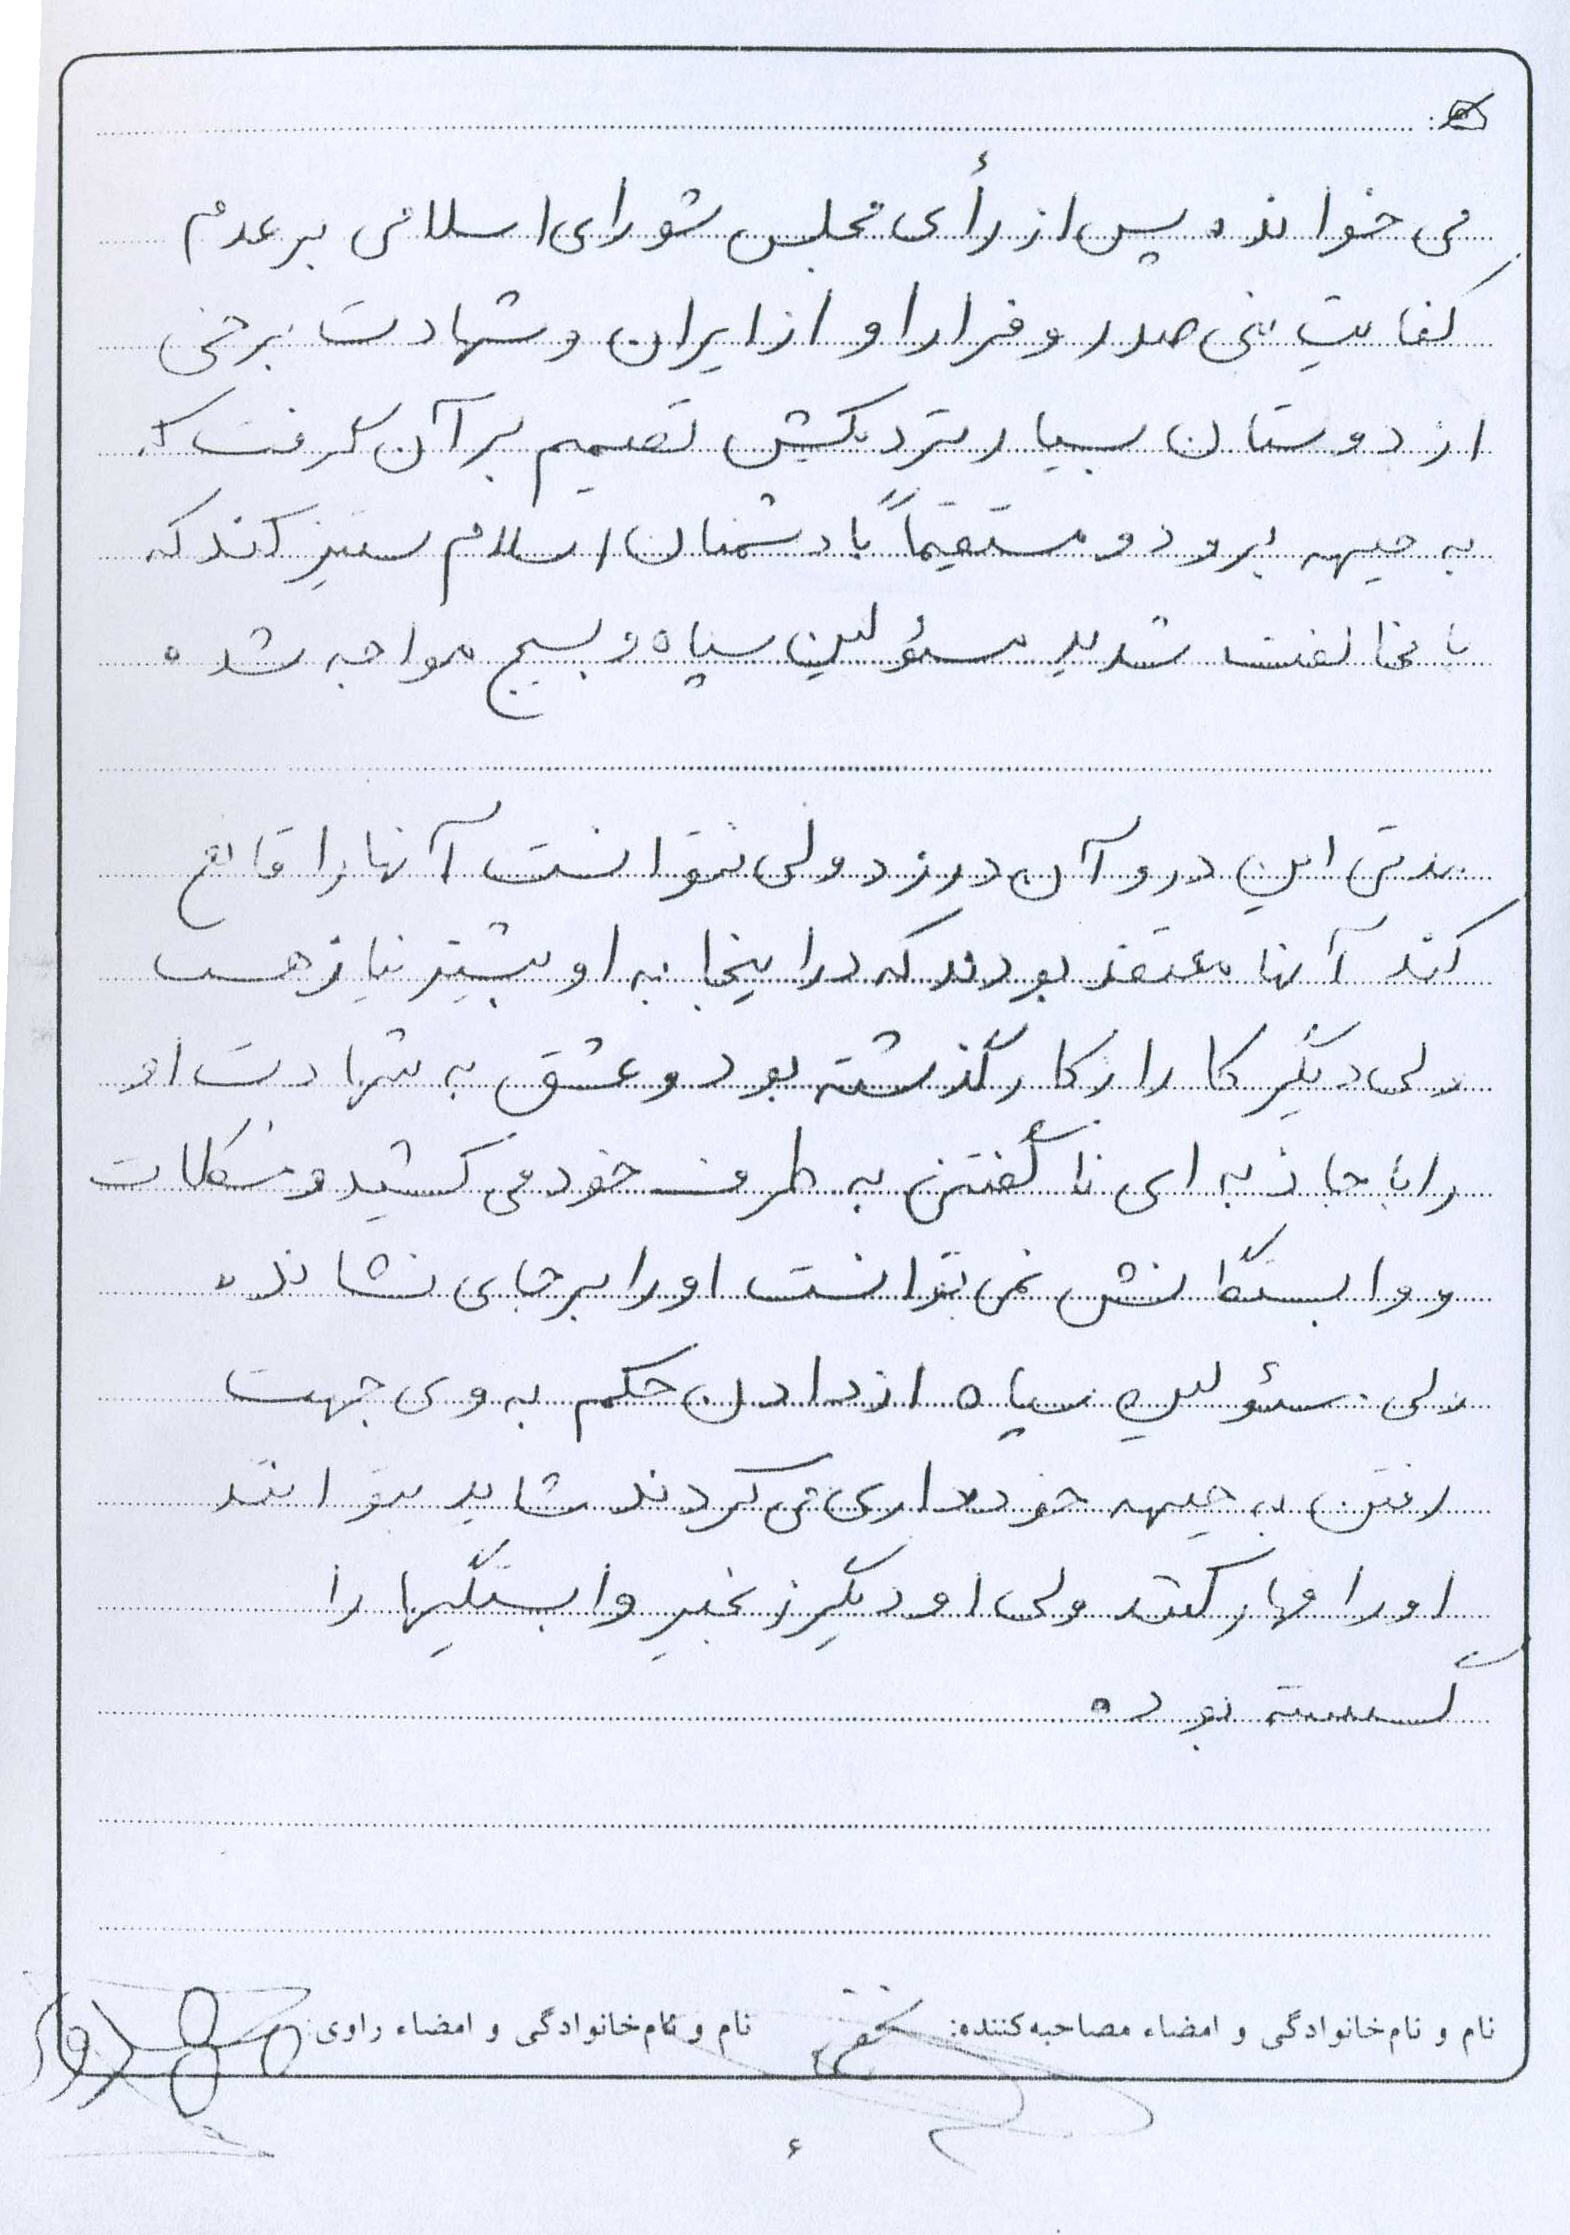 می خواند. پس از رأی مجلس شورای اسلامی بر عدم
کفایت بنی صدر و فرار او از ایران و شهادت برخی
از دوستان بسیار نزدیکش تصمیم بر آن گرفت که
به جبهه برود و مستقیماً با دشمنان اسلام ستیز کند که
با مخالفت شدید مسئولین سپاه و بسیج مواجه شد.
مدتی این در و آن در زد ولی نتوانست آنها را قانع
کند آنها معتقد بودند که در اینجا به او بیشتر نیاز هست
ولی دیگر کار از کار گذشته بود و عشق به شهادت او
را با جاذبه ای ناگفتنی به طرف خود می کشید و مشکلات
و وابستگانش نمی توانست او را بر جای نشاند.
ولی مسئولین سپاه از دادن حکم به وی جهت
رفتن به جبهه خودداری می کردند شاید بتوانند
او را مهار کنند ولی او دیگر زنجیر وابستگیها را
گسسته بود.
نام و نام‌خانوادگی و امضاء مصاحبه‌کننده: نام و نام‌خانوادگی و امضاء راوی:
۶